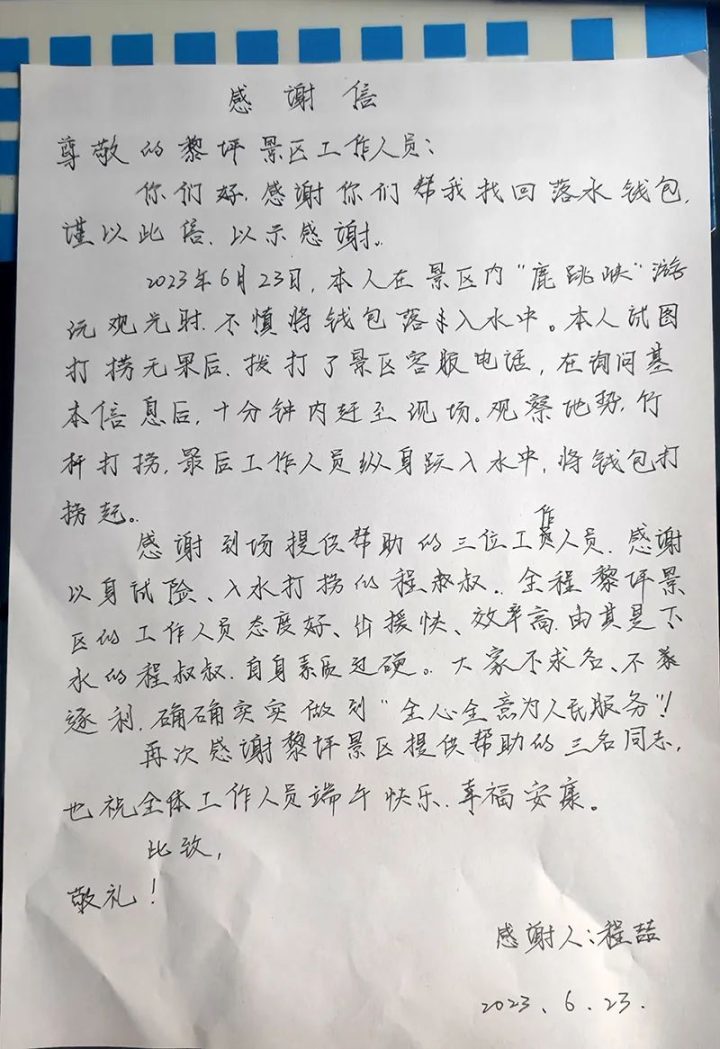 感谢信
尊敬的黎坪景区工作人员:
你们好,感谢你们帮我找回落水钱包,
谨以此信,以示感谢。
2023年6月23日,本人在景区内"鹿跳峡"游
玩观光时,不慎将钱包落入水中。本人试图
打捞无果后,拨打了景区客服电话,在询问基
本信息后,十分钟内赶至现场。观察地势,竹
杆打捞,最后工作人员纵身跃入水中,将钱包打
捞起。
感谢到场提供帮助的三位工作人员,感谢
以身试险、入水打捞的程叔叔。全程黎坪景
区的工作人员态度好、出援快、效率高,由其是下
水的程叔叔,自身素质过硬。大家不求名、不
逐利,确确实实做到"全心全意为人民服务"!
再次感谢黎坪景区提供帮助的三名同志,
也祝全体工作人员端午快乐,幸福安康。
此致,
敬礼!
感谢人:程喆
2023.6.23.